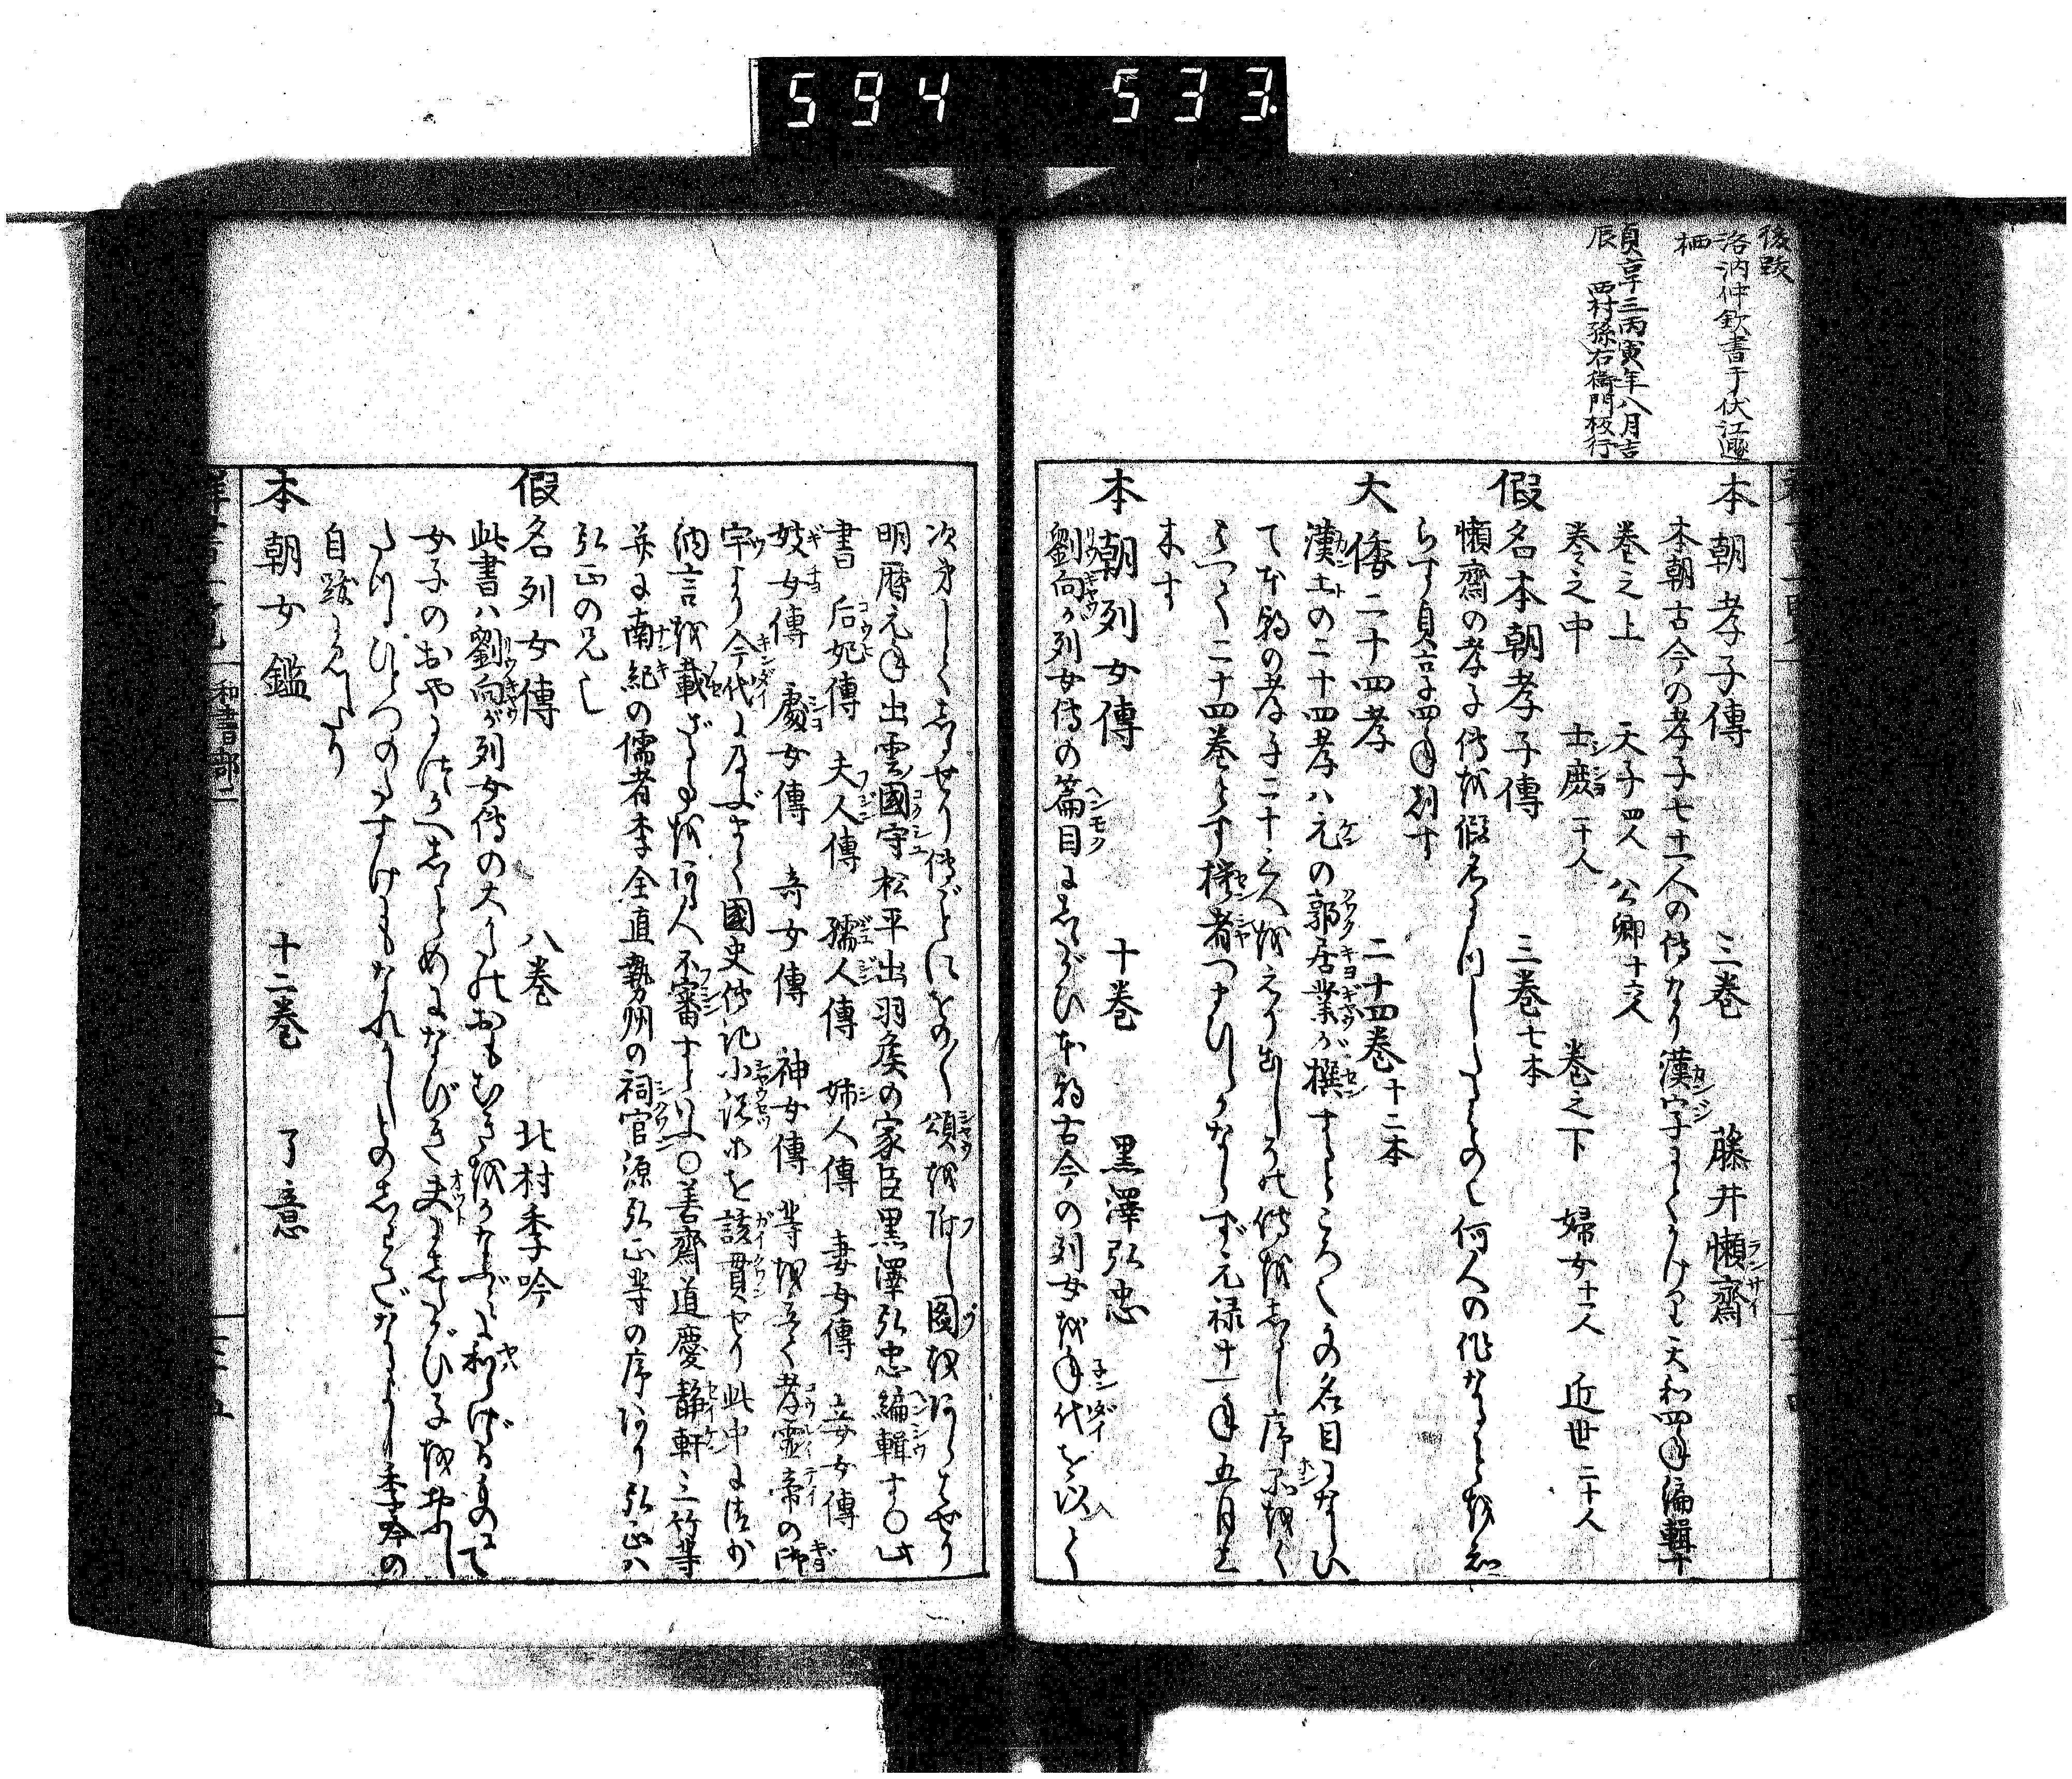 594 533
後跋
洛汭仲欽書于伏江邊
栖
貞享三丙寅年八月吉
辰 西村孫右衛門板行
本朝孝子傳 三巻 藤井懶齋
本朝古今の孝子七十一人の傳なり漢字にてかけり天和四年編輯す
巻之上 天子四人 公卿十六人
巻之中 士庶二十人 巻之下 婦女十一人 近世二十人
假名本朝孝子傳 三巻七本
懶齋の孝子傳を假名にうつしたるもの也何人の作なることを知
らす貞享四年刻す
大倭二十四孝 二十四巻十二本
漢土の二十四孝ハ元の郭居業が撰するところ也その名目にならひ
て本朝の孝子二十四人をえり出しその傳をしるし序品をく
はへて二十四巻とす撰者つまひらかならず元禄十一年五月上
木す
本朝列女傳 十巻 黒澤弘忠
劉向が列女傳の篇目にしたがひ本朝古今の列女を年代を以て
次第してしるせり傳ごとにをの〱頌を附し圖をあらはせり
明暦元年出雲國守松平出羽侯の家臣黒澤弘忠編輯す○此
書 后妃傳 夫人傳 孺人傳 婦人傳 妻女傳 妾女傳
妓女傳 處女傳 奇女傳 神女傳 等を立て孝霊帝の御
宇より今代に及ぶまて國史傳記小説等を該貫せり此中に清少
納言を載ざる事を何人不審すといふ○善齋道慶静軒三竹等
并に南紀の儒者李全直勢州の祠官源弘正等の序あり弘正ハ
弘忠の兄也
假名列女傳 八巻 北村季吟
此書ハ劉向が列女傳の大かたのおもむきをかなぶみに和らげるものにて
女子のおやにつかへしうとめにならびき夫にしたがひ子をおふし
たつるひとつのたすけにもなれかしとのしわざなるよし季吟の
自跋に見えたり
本朝女鑑 十二巻 了意
和書部二